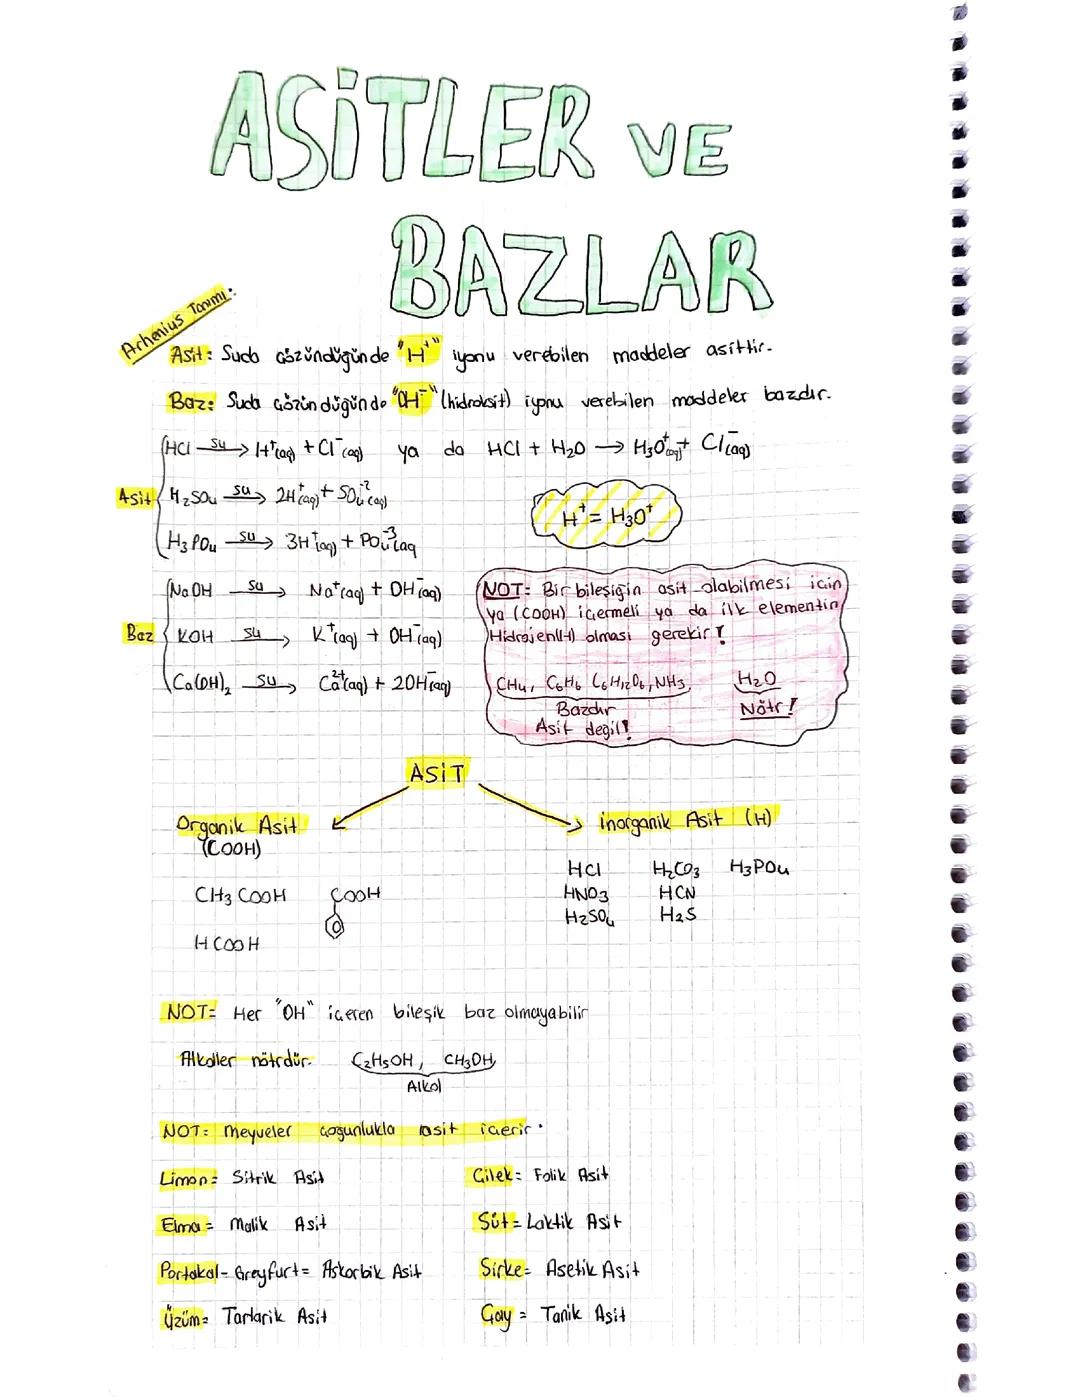 ASİTLER VE
BAZLAR
Arhenius Tanımı:
Asit: Suda çözündüğünde "H⁺" iyonu verebilen maddeler asittir.
Baz: Suda çözündüğünde "OH⁻" (hidroksit) iyonu verebilen maddeler bazdır.
Asit
HCl su→ H⁺(aq) + Cl⁻(aq) ya da HCl + H₂O → H₃O⁺(aq) + Cl⁻(aq)
H₂SO₄ su→ 2H⁺(aq) + SO₄⁻²(aq)
H₃PO₄ su→ 3H⁺(aq) + PO₄⁻³(aq
H⁺ = H₃O⁺
Baz
NaOH su→ Na⁺(aq) + OH⁻(aq)
KOH su→ K⁺(aq) + OH⁻(aq)
Ca(OH)₂ su→ Ca²⁺(aq) + 2OH⁻(aq)
NOT: Bir bileşiğin asit olabilmesi için
ya (COOH) içermeli ya da ilk elementin
Hidrojen(H) olması gerekir!
CH₄, C₆H₆ C₆H₁₂O₆, NH₃ H₂O
Bazdır Nötr!
Asit değil!
ASİT
Organik Asit
(COOH)
İnorganik Asit (H)
CH₃COOH COOH
HCOOH
HCl H₂CO₃ H₃PO₄
HNO₃ HCN
H₂SO₄ H₂S
NOT= Her "OH" içeren bileşik baz olmayabilir
Alkoller nötrdür. C₂H₅OH, CH₃OH
Alkol
NOT: meyveler çoğunlukla asit içerir.
Limon= Sitrik Asit
Çilek= Folik Asit
Elma= Malik Asit
Süt= Laktik Asit
Portakal-Greyfurt= Askorbik Asit
Sirke= Asetik Asit
Üzüm= Tartarik Asit
Çay= Tanik Asit